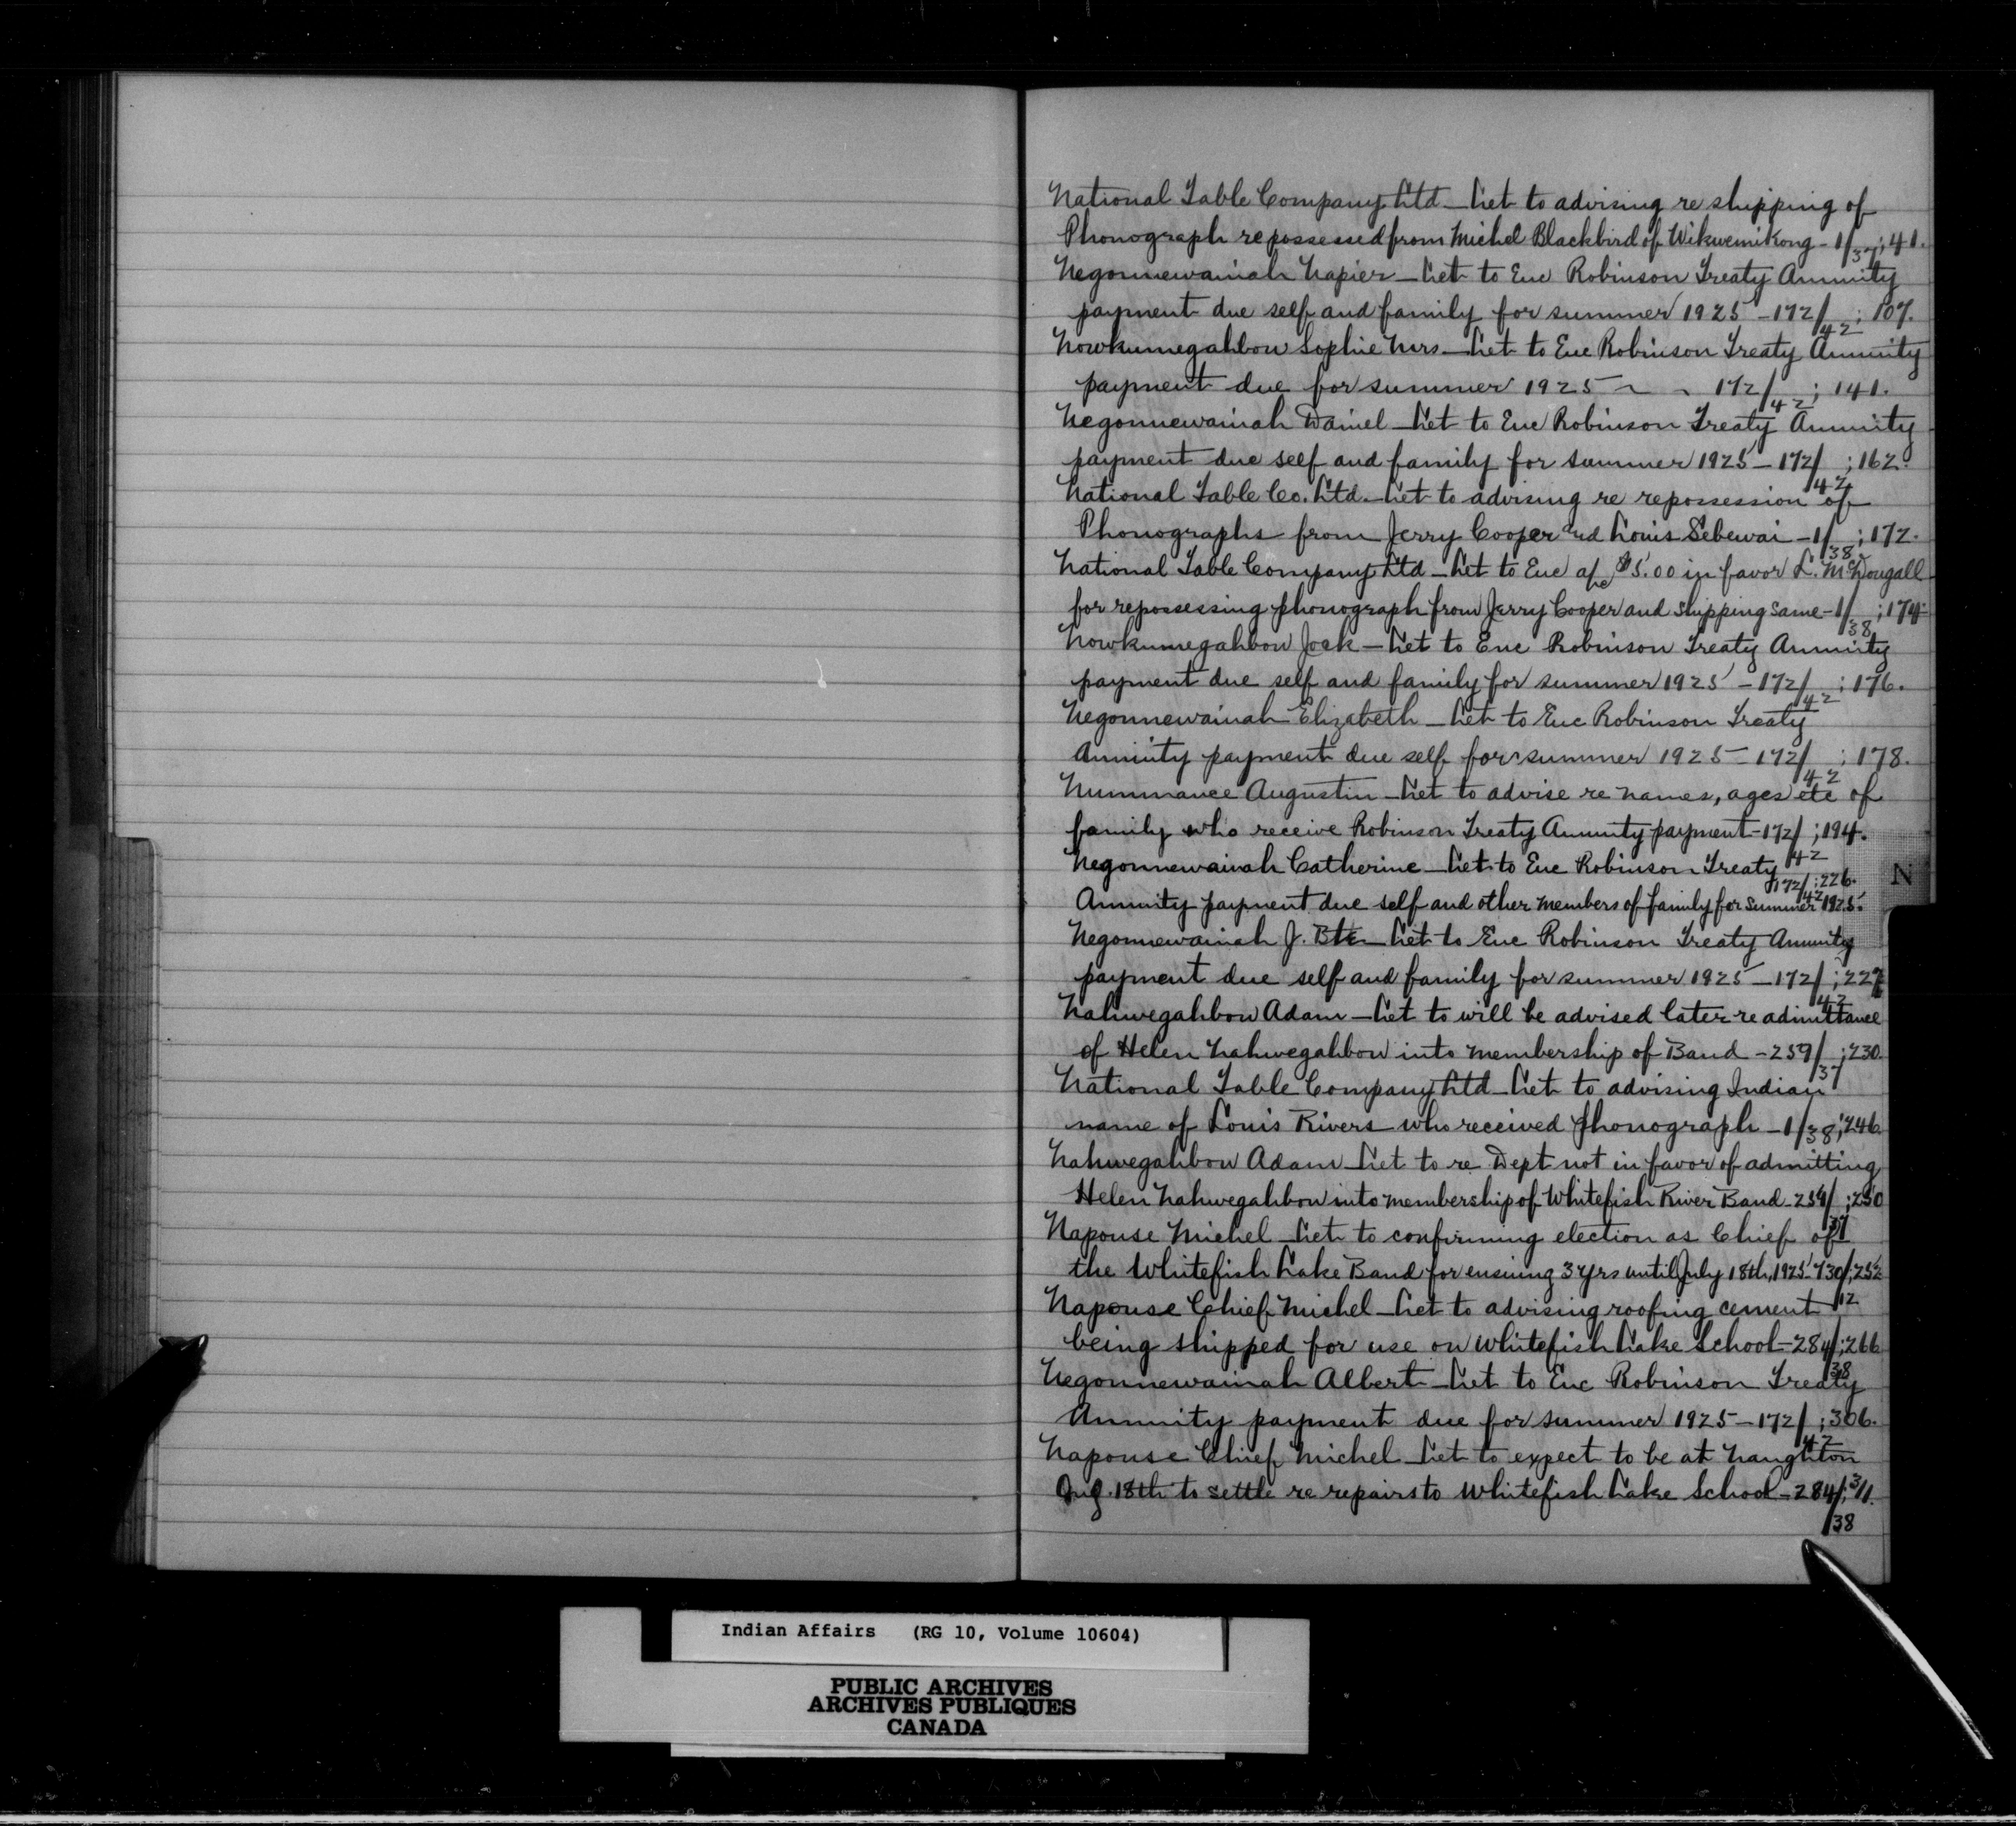 National Table Company Ltd - Let to advising re shipping of
Phonograph repossessed from Michel Blackbird of Wikwemikong - 1/37; 41.
Negonnewainah Napier - Let to Enc Robinson Treaty Annuity
payment due self and family for summer 1925 - 172/42; 107.
Nowkumegahbow Sophie Mrs - Let to Enc Robinson Treaty Annuity
payment due for summer 1925 - - 172/42; 141.
Negonnewainah Daniel - Let to Enc Robinson Treaty Annuity
payment due self and family for summer 1925 - 172/42; 162.
National Table Co. Ltd. - Let to advising re repossession of
Phonographs from Jerry Cooper and Louis Sebewai - 1/38; 172.
National Table Company Ltd - Let to Enc a/c $5.00 in favor L. McDougall
for repossessing phonograph from Jerry Cooper and shipping same - 1/38; 174.
Nowkumegahbow Jock - Let to Enc Robinson Treaty Annuity
payment due self and family for summer 1925 - 172/42; 176.
Negonnewainah Elizabeth - Let to Enc Robinson Treaty
Annuity payment due self for summer 1925 - 172/42; 178.
Nummance Augustin - Let to advise re names, ages etc of
family who receive Robinson Treaty Annuity payment - 172/42; 194.
Negonnewainah Catherine - Let to Enc Robinson Treaty
172/42; 226.
Annuity payment due self and other members of family for summer 1925.
N
Negonnewainah J. Bte - Let to Enc Robinson Treaty Annuity
payment due self and family for summer 1925 - 172/42; 227
Nahwegahbow Adam - Let to will be advised later re admittance
of Helen Nahwegahbow into membership of Band - 259/37; 230.
National Table Company Ltd - Let to advising Indian
name of Louis Rivers who received phonograph - 1/38; 246.
Nahwegahbow Adam - Let to re Dept not in favor of admitting
Helen Nahwegahbow into membership of Whitefish River Band - 259/37; 250
Napouse Michel - Let to confirming election as Chief of
the Whitefish Lake Band for ensuing 3 yrs until July 18th, 1925 - 730/12; 252
Napouse Chief Michel - Let to advising roofing cement
being shipped for use on Whitefish Lake School - 284/38; 266
Negonnewainah Albert - Let to Enc Robinson Treaty
Annuity payment due for summer 1925 - 172/42; 306.
Napouse Chief Michel - Let to expect to be at Naughton
Aug. 18th to settle re repairs to Whitefish Lake School - 284/38; 311.
Indian Affairs (RG 10, Volume 10604)
PUBLIC ARCHIVES
ARCHIVES PUBLIQUES
CANADA